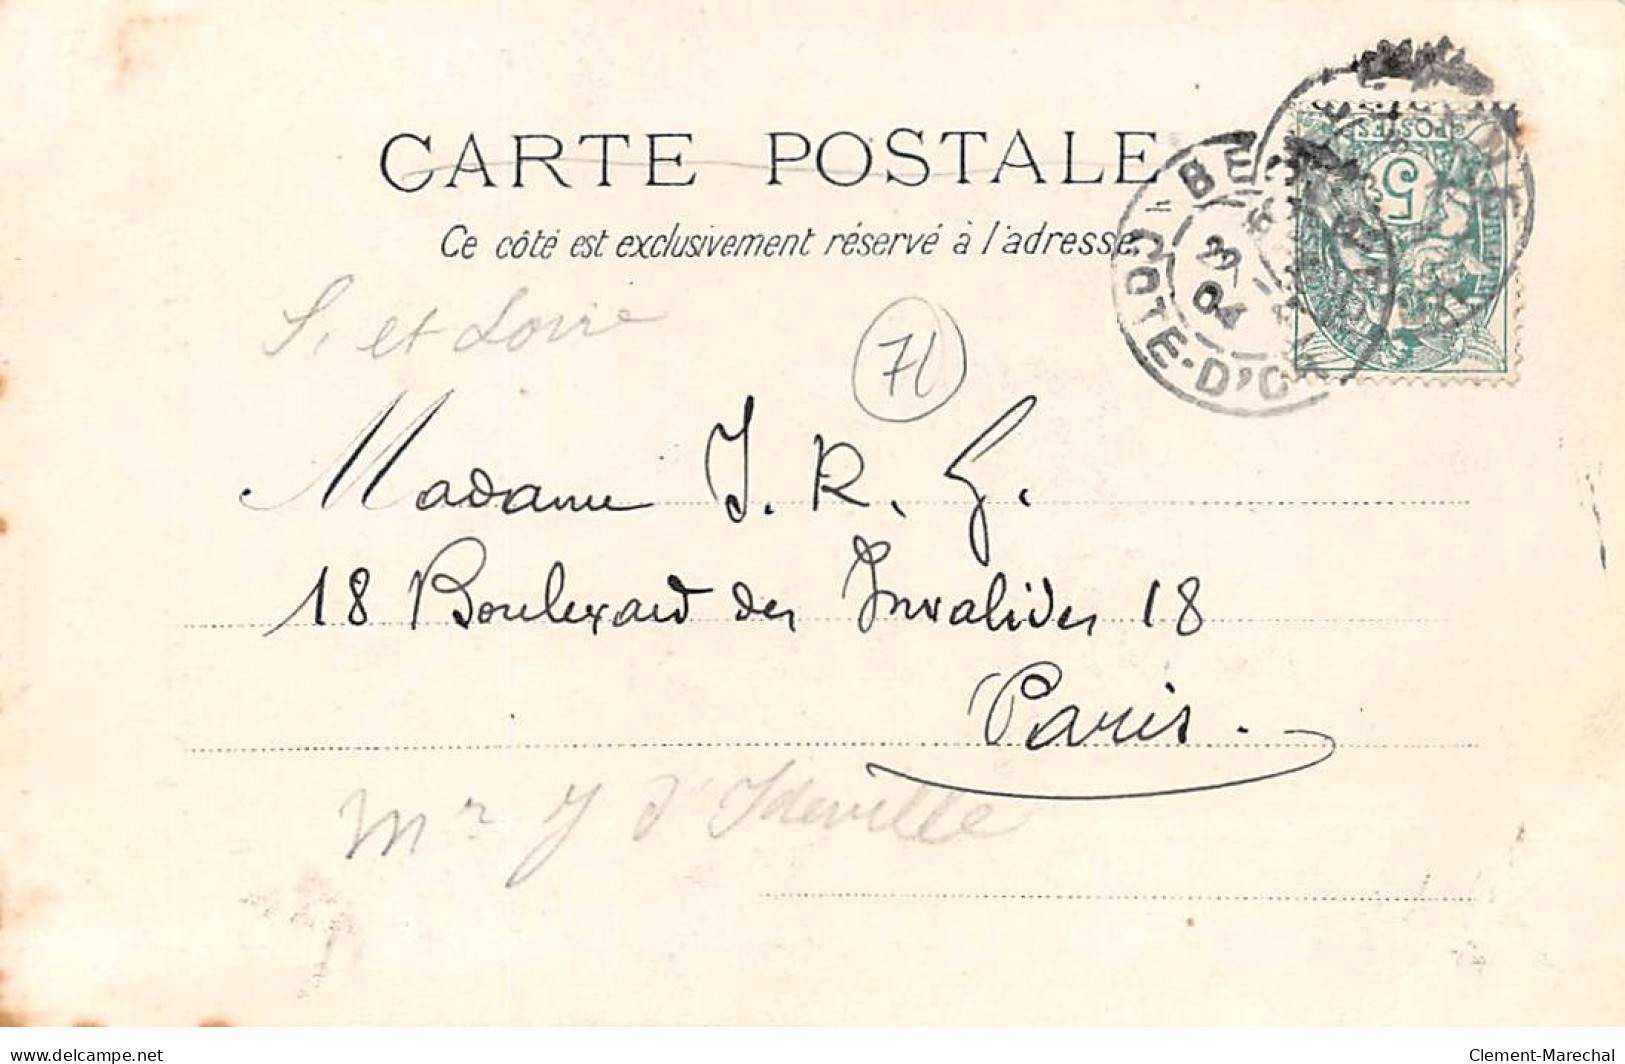 CARTE POSTALE
Ce côté est exclusivement réservé à l'adresse.
POSTES
5
CÔTE-D'OR
04
S. et Loire
71
Madame J. R. G.
18 Boulevard des Invalides 18
Paris.
Mr J d'Ideville
www.delcampe.net
Clement-Marechal